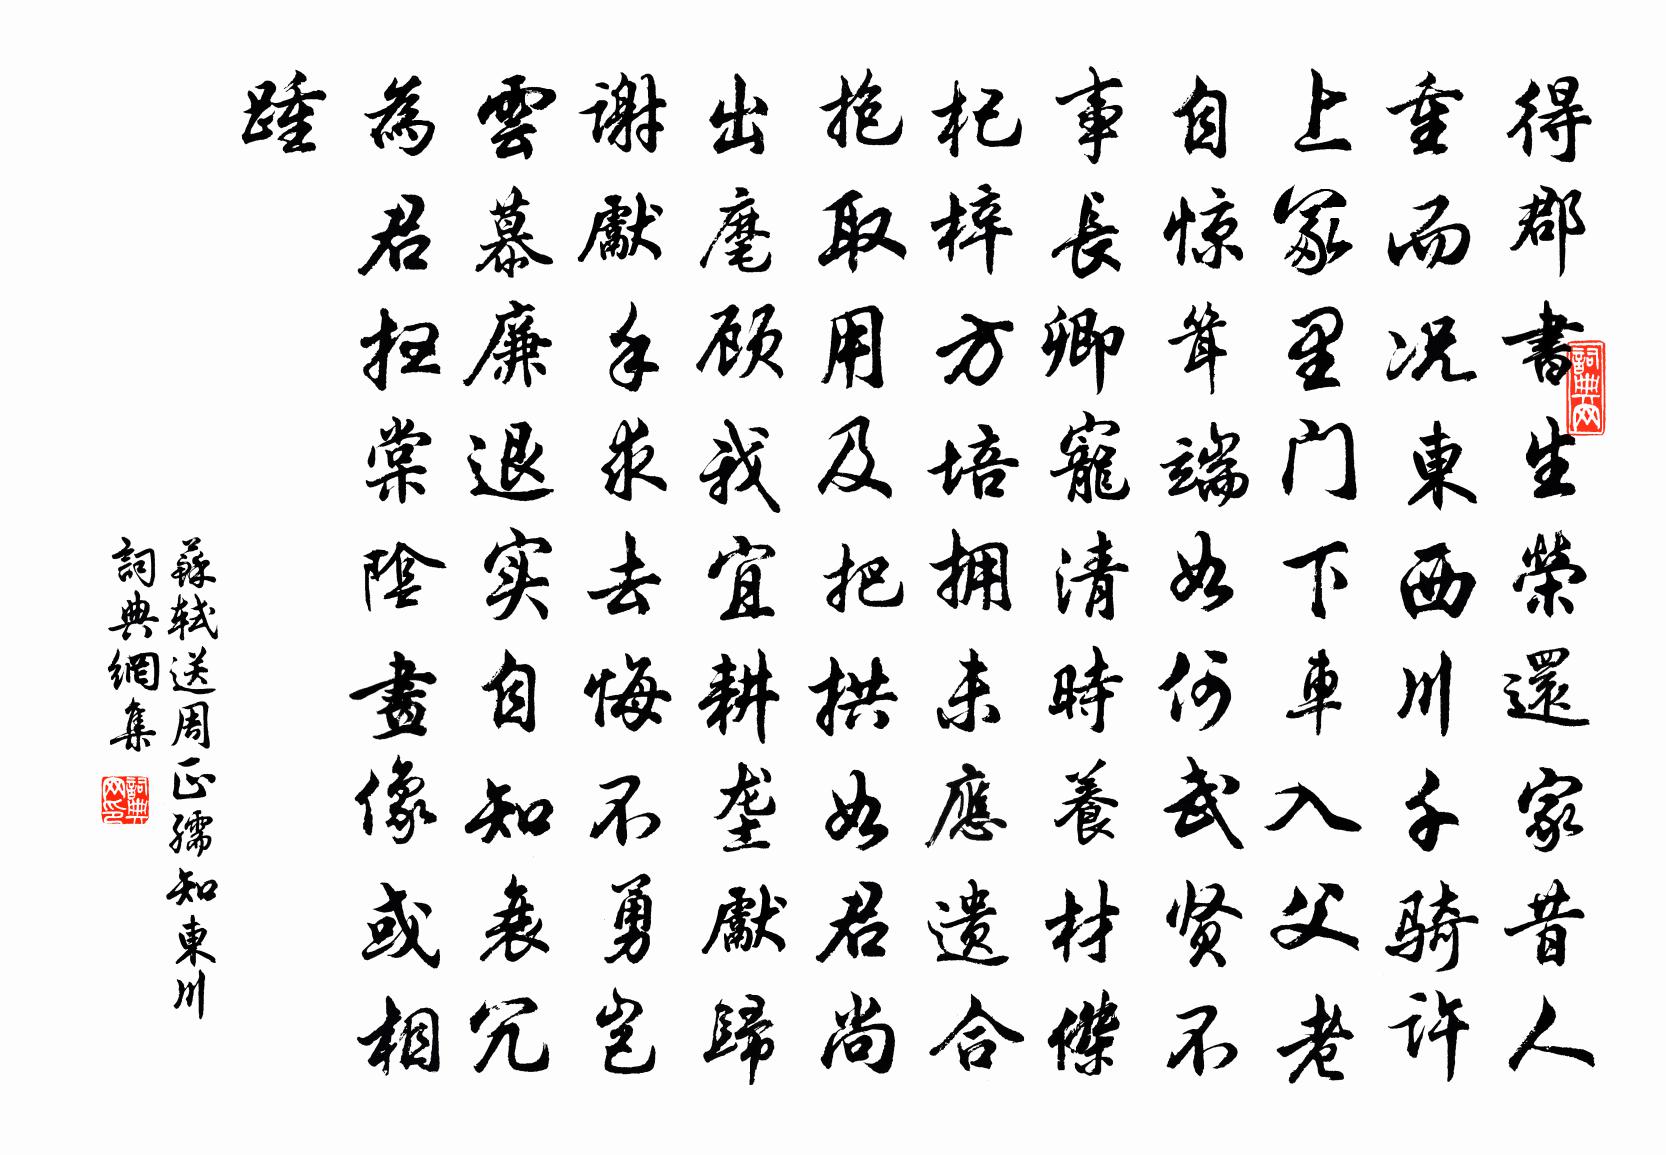 得郡書生榮還家昔人
重而况東西川千骑許
上冢里门下車入父老
自惊耸端如何武贤不
事長卿寵清時養材傑
杞梓方培拥未應遗合
抱取用及把拱如君尚
出麾顾我宜耕垄獻歸
謝獻手求去悔不勇豈
雲慕廉退实自知衰冗
為君扫棠陰畫像或相
踵
蘇轼送周正孺知東川
詞典網集
詞典网
詞典网印